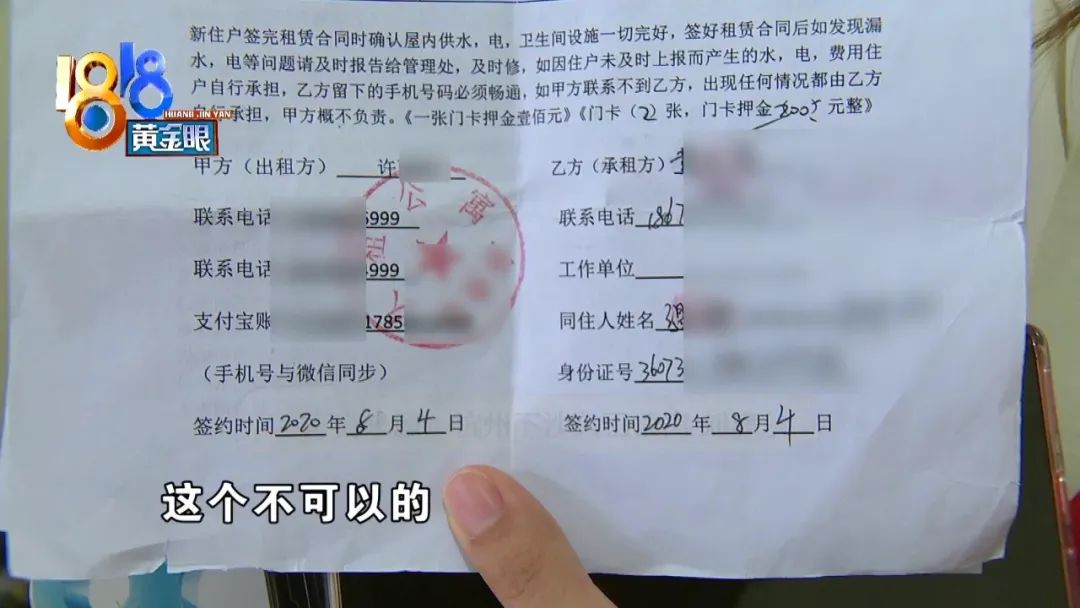 新住户签完租赁合同时确认屋内供水，电，卫生间设施一切完好，签好合同后如发现漏
水，电等问题请及时报告给管理处，及时修，如因住户未及时上报而产生的水，电，费用住
户自行承担，乙方留下的手机号码必须畅通，如甲方联系不到乙方，出现任何情况都由乙方
自行承担，甲方概不负责。《一张门卡押金壹佰元》《门卡（2）张，门卡押金 200 元整》
1818
HUANG JIN YAN
黄金眼
甲方（出租方） 许
乙方（承租方）
联系电话 5999
联系电话 1867
联系电话 4999
工作单位
支付宝账 1785
同住人姓名
（手机号与微信同步）
身份证号 36073
签约时间 2020 年 8 月 4 日
签约时间 2020 年 8 月 4 日
公寓
租
这个不可以的